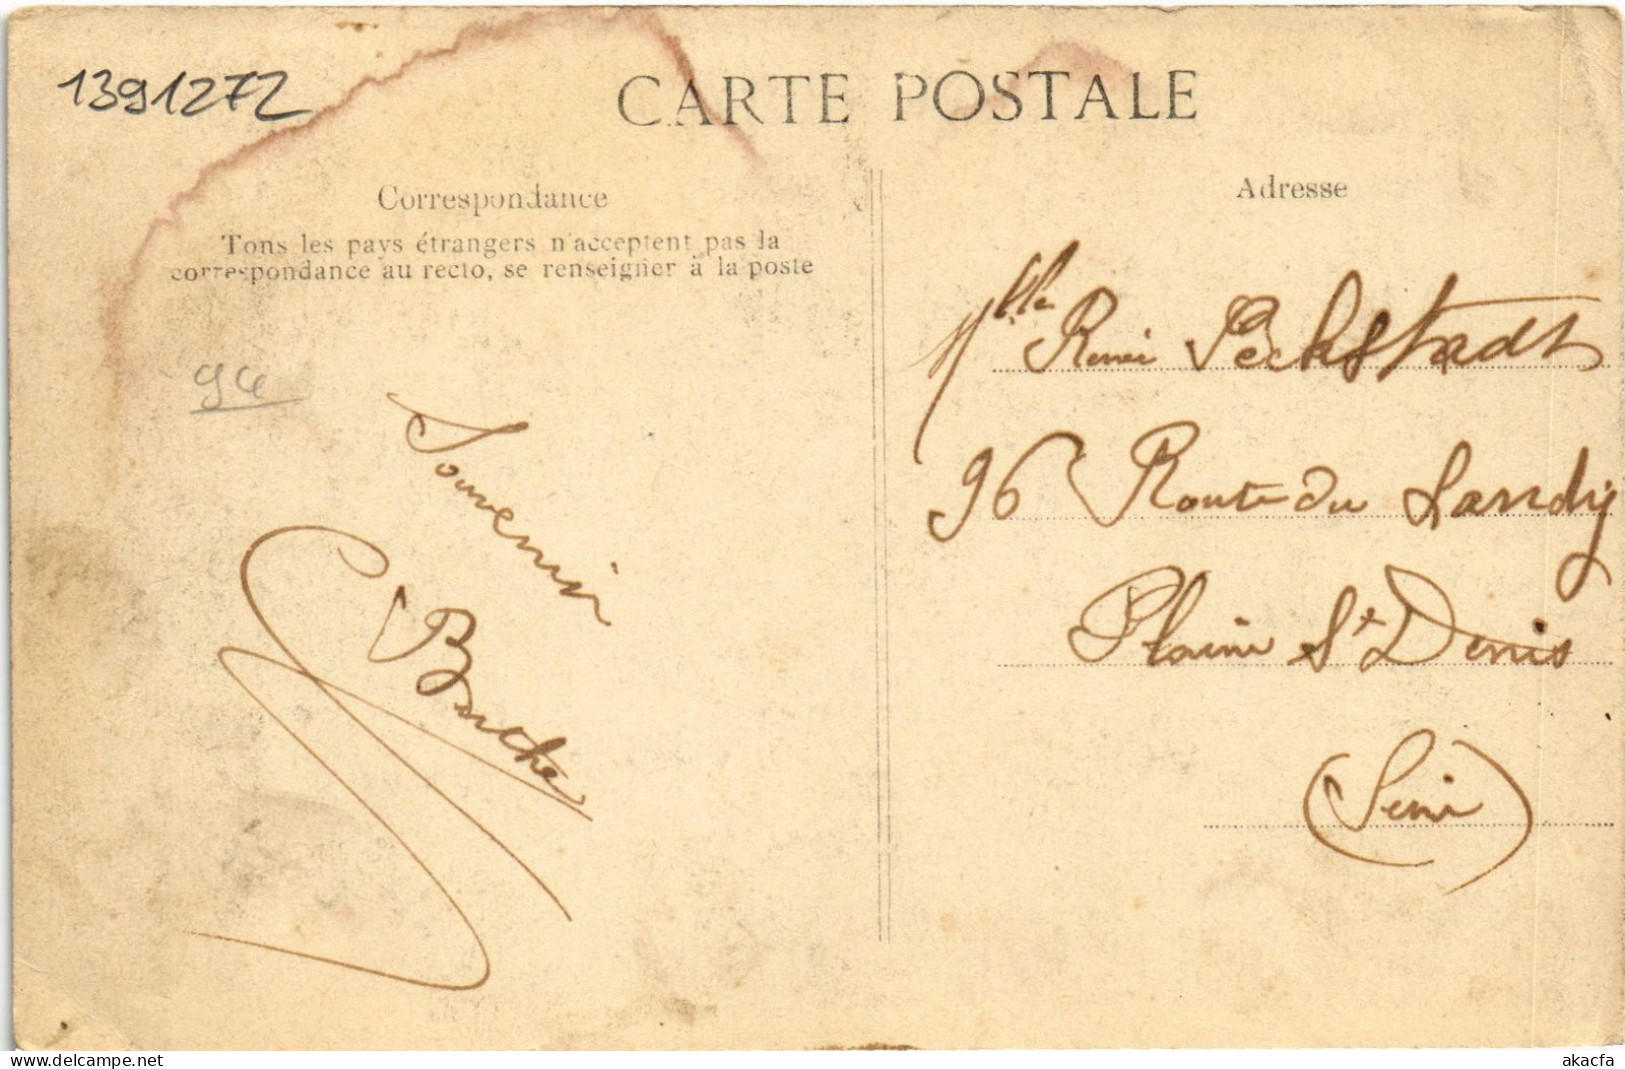 1391272
CARTE POSTALE
Correspondance
Tous les pays étrangers n'acceptent pas la
correspondance au recto, se renseigner à la poste
94
Souvenir
Adresse
Mlle Renée
96 Route du Landy
Plaine St Denis
(Seine)
www.delcampe.net
akacfa